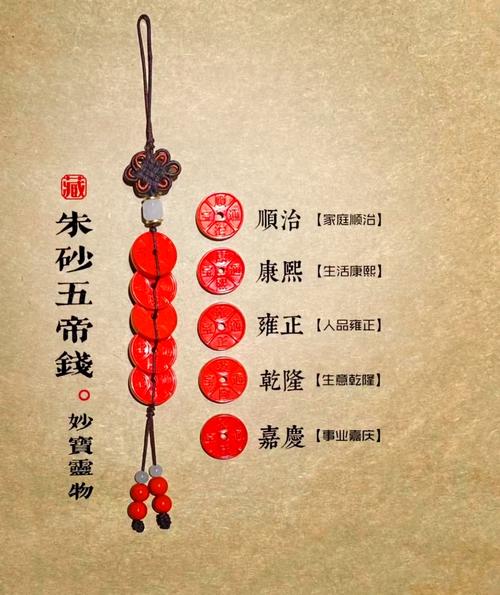 藏
朱砂五帝錢
妙寶靈物
順治【家庭顺治】
康熙【生活康熙】
雍正【人品雍正】
乾隆【生意乾隆】
嘉慶【事业嘉庆】